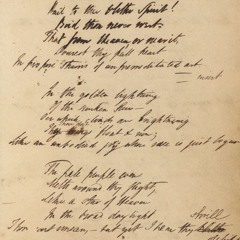 Hail to thee blithe Spirit!
Bird thou never wert.
That from Heaven, or near it,
Pourest thy full heart
In profuse strains of unpremeditated art
In the golden lightning
Of the sunken Sun—
O'er which clouds are brightning
Thou dost float & run;
Like an unbodied joy whose race is just begun
The pale purple even
Melts around thy flight,
Like a star of Heaven
In the broad day light
Thou art unseen, — but yet I hear thy